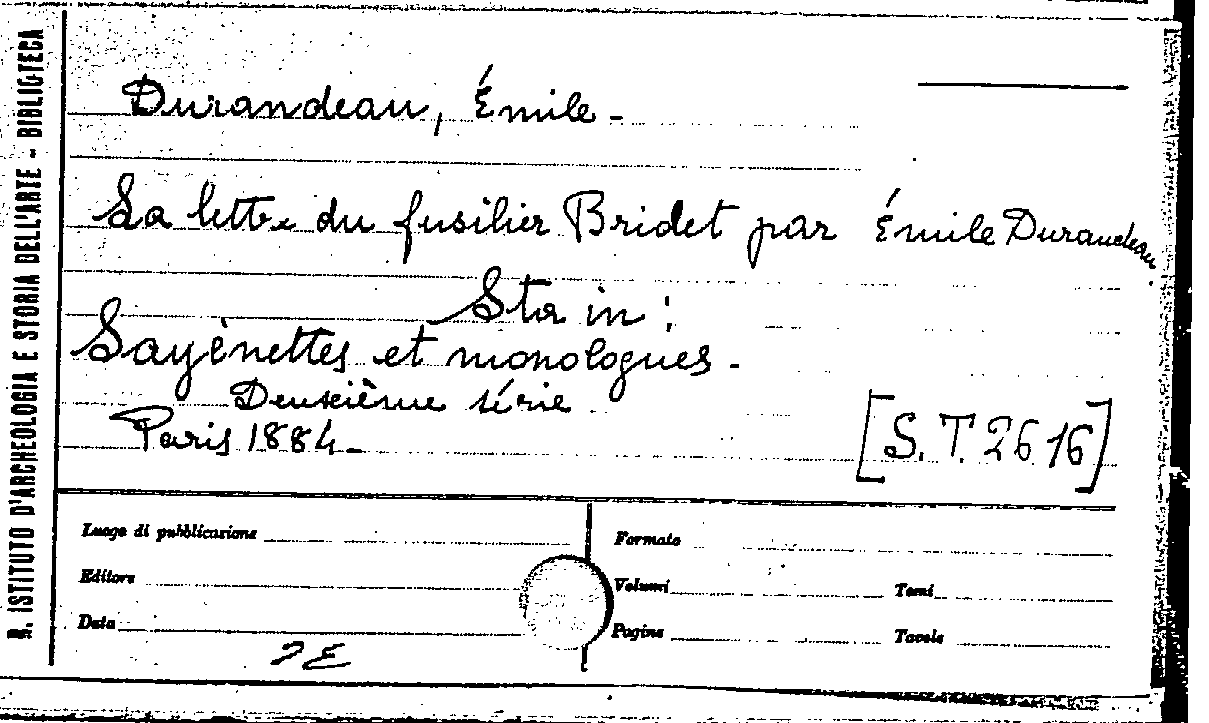 R. ISTITUTO D'ARCHEOLOGIA E STORIA DELL'ARTE - BIBLIOTECA
Durandeau, Émile -
La lettre du fusilier Bridet par Émile Durandeau
Sta in:
Sayènettes et monologues -
Deuxième série
Paris 1884 -
[S. T. 26 16]
Luogo di pubblicazione
Formato
Editore
Volumi
Tomi
Data
Pagine
Tavole